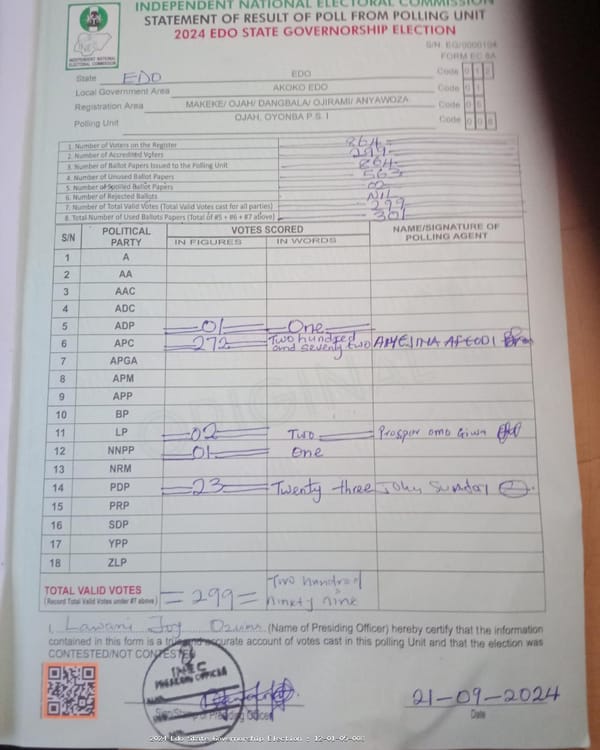 INDEPENDENT NATIONAL ELECTORAL COMMISSION
STATEMENT OF RESULT OF POLL FROM POLLING UNIT
2024 EDO STATE GOVERNORSHIP ELECTION
S/N: EG/0000104
FORM EC 8A
INDEPENDENT NATIONAL ELECTORAL COMMISSION
State EDO EDO Code 012
Local Government Area AKOKO EDO Code 01
Registration Area MAKEKE/ OJAH/ DANGBALA/ OJIRAMI/ ANYAWOZA Code 05
Polling Unit OJAH, OYONBA P.S. I Code 008
1. Number of Voters on the Register 864
2. Number of Accredited Voters 299
3. Number of Ballot Papers Issued to the Polling Unit 864
4. Number of Unused Ballot Papers 563
5. Number of Spoiled Ballot Papers 02
6. Number of Rejected Ballots NIL
7. Number of Total Valid Votes (Total Valid Votes cast for all parties) 299
8. Total Number of Used Ballots Papers (Total of #5 + #6 + #7 above) 301
S/N POLITICAL PARTY VOTES SCORED NAME/SIGNATURE OF POLLING AGENT
IN FIGURES IN WORDS
1 A
2 AA
3 AAC
4 ADC
5 ADP 01 One
6 APC 272 Two hundred and seventy two
7 APGA
8 APM
9 APP
10 BP
11 LP 02 Two Prosper omo Giwa
12 NNPP 01 One
13 NRM
14 PDP 23 Twenty three John Sunday
15 PRP
16 SDP
17 YPP
18 ZLP
ORIGINAL
TOTAL VALID VOTES = 299 = Two hundred
(Record Total Valid Votes under #7 above) ninety nine
I, Lawani Joy (Name of Presiding Officer) hereby certify that the information
contained in this form is a true and accurate account of votes cast in this polling Unit and that the election was
CONTESTED/NOT CONTESTED
INEC
PRESIDING OFFICER
Sign/Stamp of Presiding Officer
21-09-2024
Date
2024 Edo State Governorship Election : 12-01-05-008